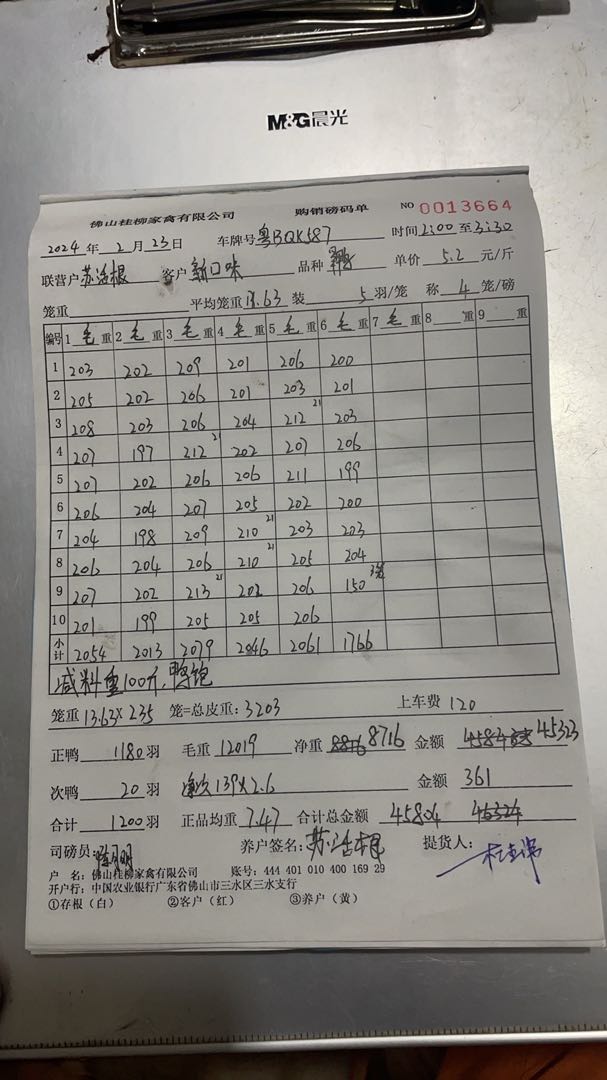 M&G晨光
佛山桂柳家禽有限公司 购销磅码单 NO 0013664
2024年2月23日 车牌号粤BQK587 时间2:00至3:30
联营户苏活根 客户新口味 品种 单价5.2元/斤
笼重 平均笼重13.63 装5羽/笼 称4笼/磅
编号 1毛重 2毛重 3毛重 4毛重 5毛重 6毛重 7毛重 8重 9重
1 203 202 209 201 206 200
2 205 202 206 201 203 201
3 208 203 206 204 212 21 203
4 207 197 212 21 202 207 206
5 207 202 206 206 211 199
6 206 204 207 205 202 200
7 204 198 209 210 21 203 203
8 206 204 206 210 21 205 204
9 207 202 213 21 202 206 150 3笼
10 201 199 205 205 206
小计 2054 2013 2079 2046 2061 1766
减料重100斤,鸭饱
笼重13.63×235笼=总皮重:3203 上车费120
正鸭1180羽 毛重12019 净重8816 8716 金额45323
次鸭20羽 净次139×2.6 金额361
合计1200羽 正品均重7.47 合计总金额45804 46324
司磅员: 养户签名:苏活根 提货人:
户 名:佛山桂柳家禽有限公司 账号:444 401 010 400 169 29
开户行:中国农业银行广东省佛山市三水区三水支行
①存根(白) ②客户(红) ③养户(黄)